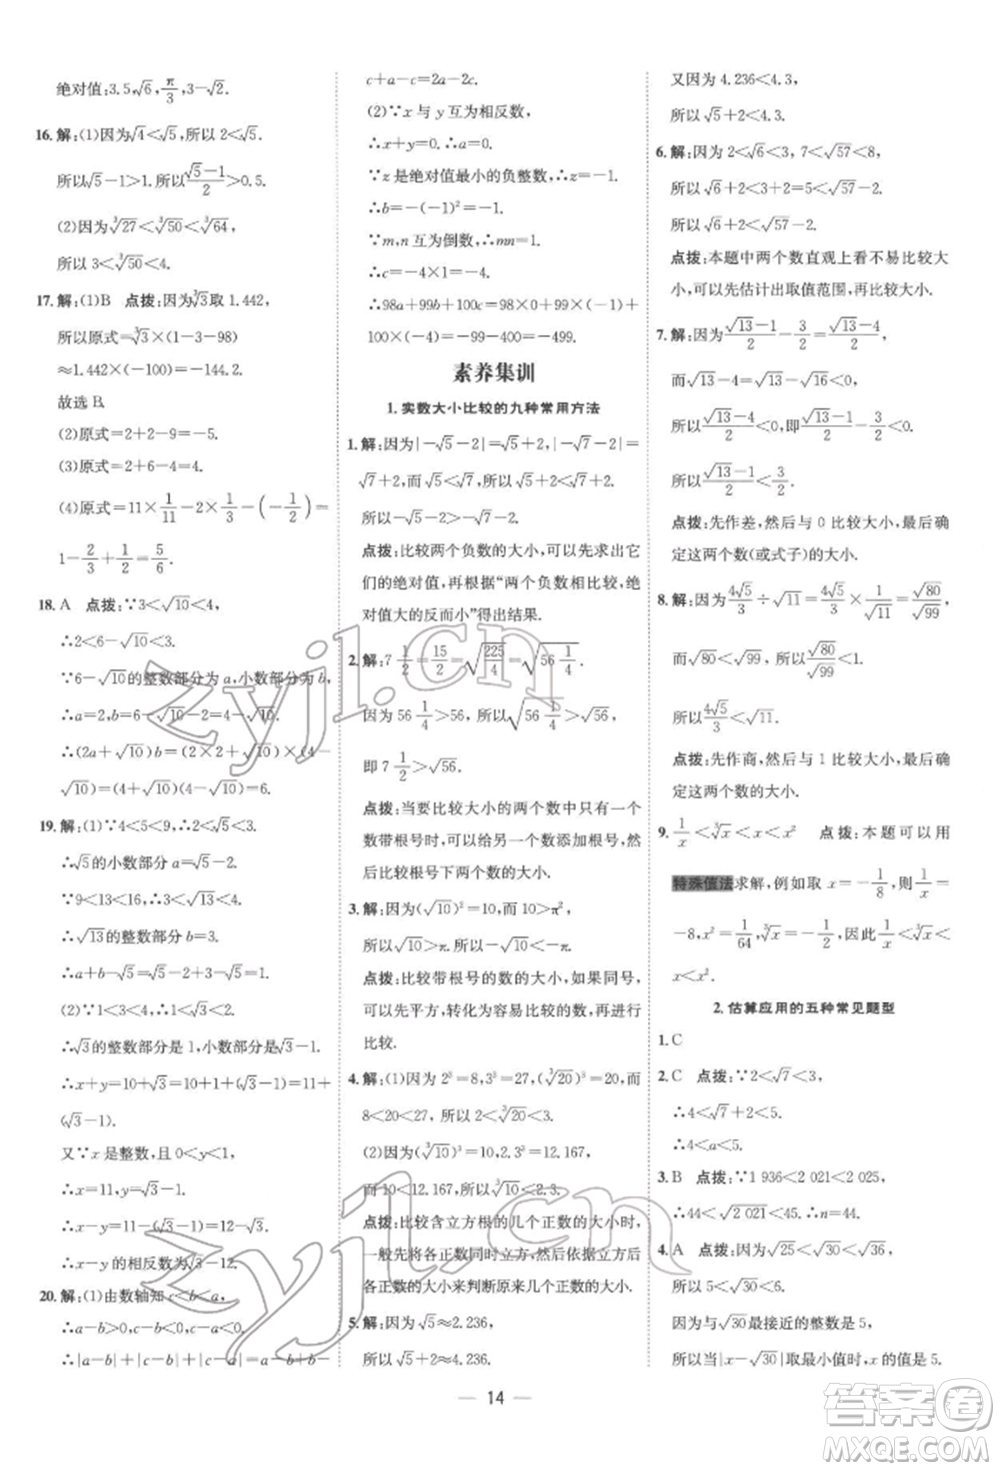 绝对值:3.5,√6,π/3,3-√6.
16.解:(1)因为√4<√5,所以2<√5.
所以√5-1>1.所以(√5-1)/2>0.5.
(2)因为∛27<∛50<∛64,
所以3<∛50<4.
17.解:(1)B 点拨:因为∛3取1.442,
所以原式=∛3×(1-3-98)
≈1.442×(-100)=-144.2.
故选B.
(2)原式=2+2-9=-5.
(3)原式=2+6-4=4.
(4)原式=11×1/11-2×1/3-(-1/2)=
1-2/3+1/2=5/6.
18.A 点拨:∵3<√10<4,
∴2<6-√10<3.
∵6-√10的整数部分为a,小数部分为b,
∴a=2,b=6-√10-2=4-√10.
∴(2a+√10)b=(2×2+√10)×(4-
√10)=(4+√10)(4-√10)=6.
19.解:(1)∵4<5<9,∴2<√5<3.
∴√5的小数部分a=√5-2.
∵9<13<16,∴3<√13<4.
∴√13的整数部分为b=3.
∴a+b-√5=√5-2+3-√5=1.
(2)∵1<3<4,∴1<√3<2.
∴√3的整数部分是1,小数部分是√3-1.
∴x+y=10+√3=10+1+(√3-1)=11+
(√3-1).
又∵x是整数,且0<y<1,
∴x=11,y=√3-1.
∴x-y=11-(√3-1)=12-√3.
∴x-y的相反数为√3-12.
20.解:(1)由数轴知c<b<a,
∴a-b>0,c-b<0,c-a<0.
∴|a-b|+|c-b|+|c-a|=a-b+b-
c+a-c=2a-2c.
(2)∵x与y互为相反数,
∴x+y=0.
∵z是绝对值最小的负整数,
∴z=-1.
∴b=-(-1)²=-1.
∵m,n互为倒数,∴mn=1.
∴c=-4×1=-4.
∴98a+99b+100c=98×0+99×(-1)+
100×(-4)=-99-400=-499.
素养集训
1.实数大小比较的九种常用方法
1.解:因为|-√5-2|=√5+2,|-√7-2|=
√7+2,而√5<√7,所以√5+2<√7+2.
所以-√5-2>-√7-2.
点拨:比较两个负数的大小,可以先求出它
们的绝对值,再根据“两个负数相比较,绝
对值大的反而小”得出结果.
2.解:7 1/2=15/2=√(225/4)=√(56 1/4).
因为56 1/4>56,所以√(56 1/4)>√56,
即7 1/2>√56.
点拨:当要比较大小的两个数中只有一个
数带根号时,可以给另一个数添加根号,只
需比较两个被开方数的大小,就可以得到原
来两个数的大小.
3.解:因为(√10)²=10,而10>π²,
所以√10>π.所以-√10<-π.
点拨:比较带根号的数的大小,如果同号,可
以先平方,转化为容易比较的数,然后再进行
比较.
4.解:(1)因为2³=8,3³=27,(∛20)³=20,而
8<20<27,所以2<∛20<3.
(2)因为(∛10)³=10,2.3³=12.167,
而10<12.167,所以∛10<2.3.
点拨:比较含立方根的几个正数的大小时,
一般先将各正数同时立方,然后依据立方后
各正数的大小来判断原来几个正数的大小.
5.解:因为√5≈2.236,
所以√5+2≈4.236.
又因为4.236<4.3,
所以√5+2<4.3.
6.解:因为2<√6<3,7<√57<8,
所以√6+2<3+2=5=7-2<√57-2.
所以√6+2<√57-2.
点拨:本题中两个数直观上看不易比较大
小,可以先估计出取值范围,再比较大小.
7.解:因为(√13-1)/2-3/2=(√13-4)/2,
而√13-4<√16-4<0,
所以(√13-4)/2<0,即(√13-1)/2-3/2<0.
所以(√13-1)/2<3/2.
点拨:先作差,然后与0比较大小,最后确
定这两个数(或式子)的大小.
8.解:因为4√5/3÷√11=4√5/3×1/√11=√80/√99,
而√80<√99,所以√80/√99<1.
所以4√5/3<√11.
点拨:先作商,然后与1比较大小,最后确定
这两个数的大小.
9.1/x<∛x<x<x² 点拨:本题可以用
特殊值法求解,例如取x=-1/8,则1/x=
-8,x²=1/64,∛x=-1/2,因此1/x<∛x<
x<x².
2.估算应用的五种常见题型
1.C
2.C 点拨:∵2<√7<3,
∴4<√7+2<5.
∴4<a<5.
3.B 点拨:∵1 936<2 021<2 025,
∴44<√2 021<45.∴n=44.
4.A 点拨:∵√25<√30<√36,
所以5<√30<6.
因为与√30最接近的整数是5,
所以当|x-√30|取最小值时,x的值是5.
14
zyjl.cn
zyjl.cn
答案圈
MXQE.COM